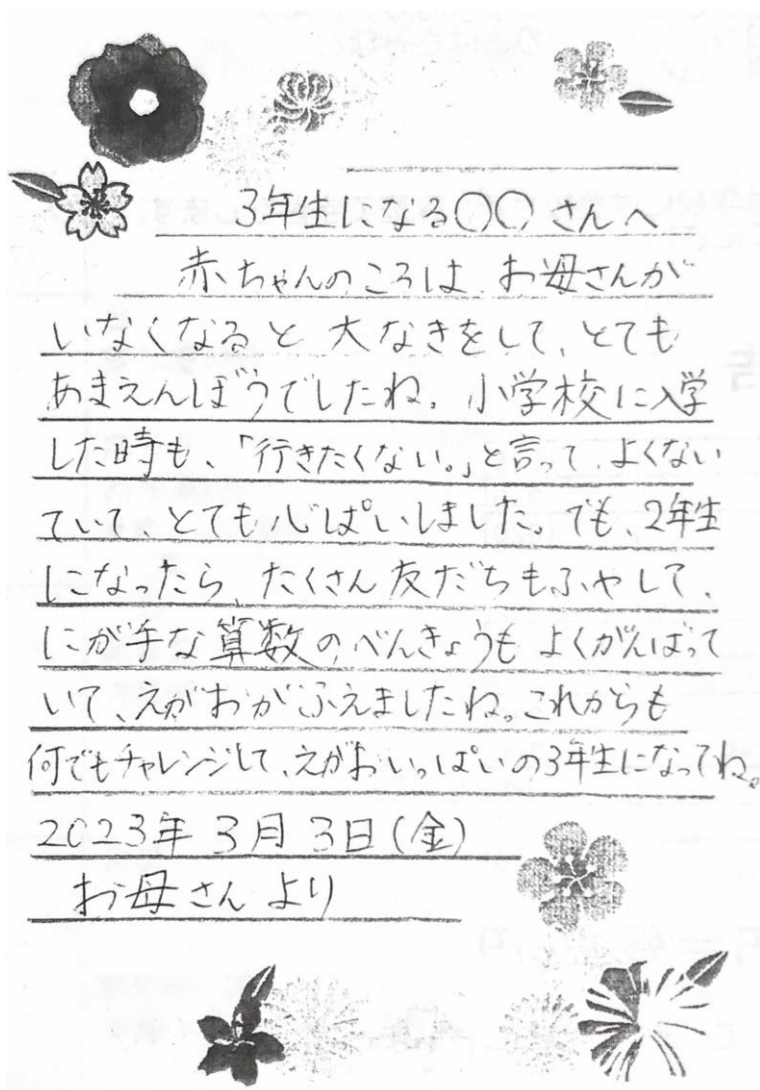 3年生になる〇〇さんへ
赤ちゃんのころは、お母さんが
いなくなると大なきをして、とても
あまえんぼうでしたね。小学校に入学
した時も、「行きたくない。」と言って、よくない
ていて、とても心ぱいしました。でも、2年生
になったら、たくさん友だちもふやして、
にが手な算数のべんきょうもよくがんばって
いて、えがおがふえましたね。これからも
何でもチャレンジして、えがおいっぱいの3年生になってね。
2023年3月3日(金)
お母さんより